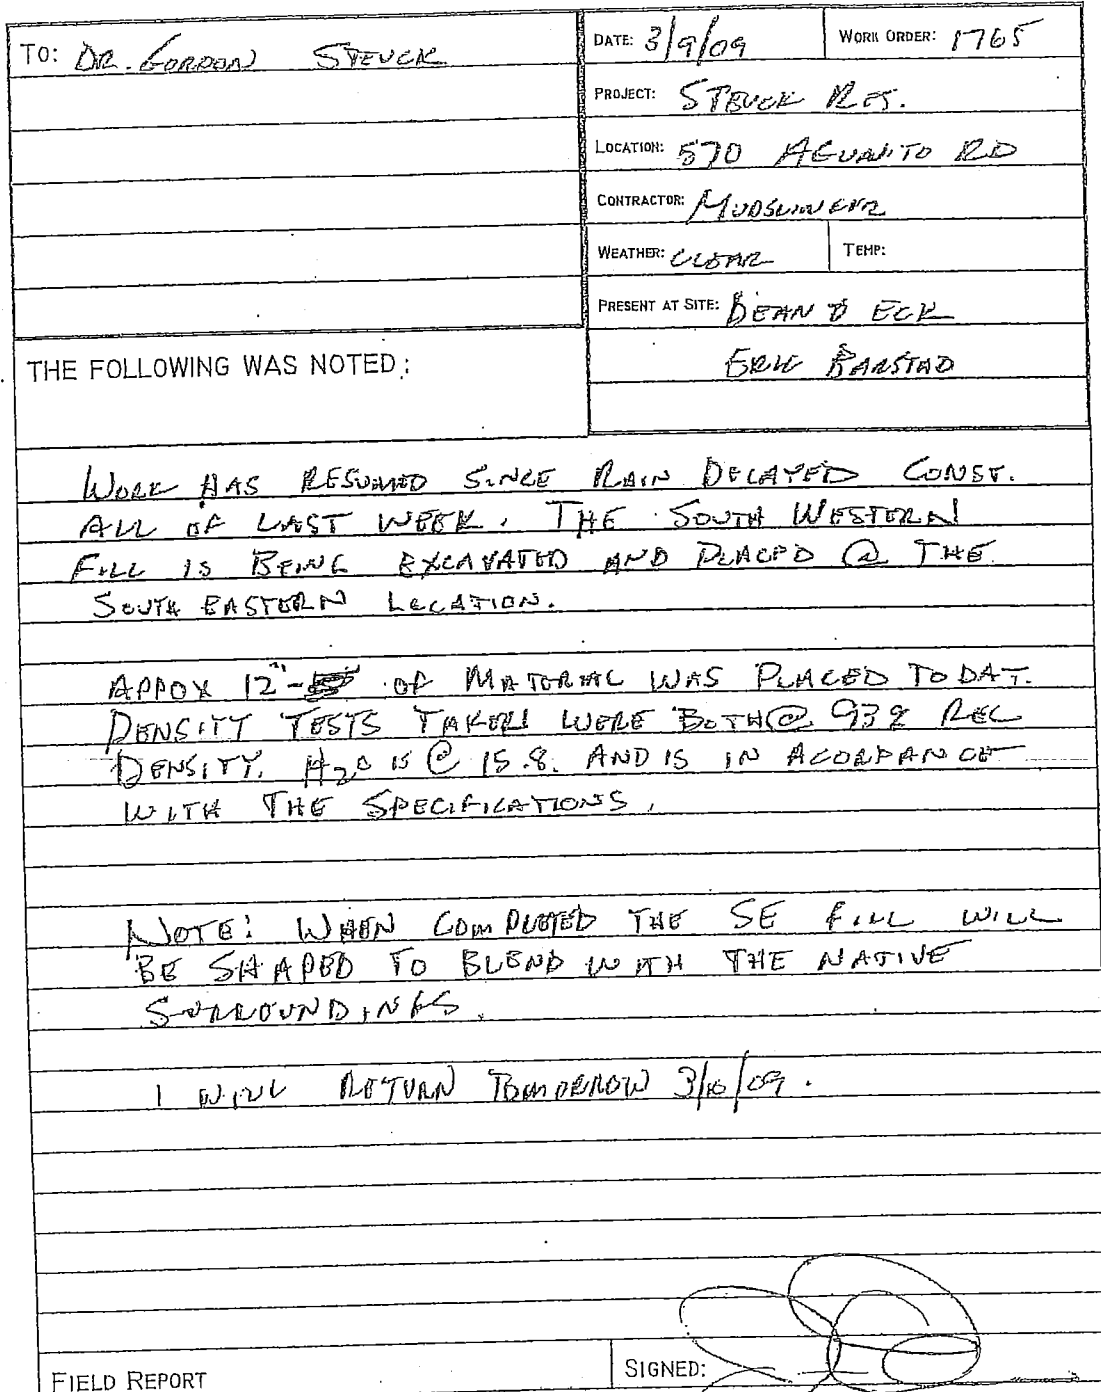 TO: DR. GORDON STEUCK
DATE: 3/9/09
WORK ORDER: 1765
PROJECT: STEUCK RES.
LOCATION: 570 AGUAJITO RD
CONTRACTOR: MUDSLINGER
WEATHER: CLEAR
TEMP:
PRESENT AT SITE: DEAN D ECK
ERIK BARSTAD
THE FOLLOWING WAS NOTED:
WORK HAS RESUMED SINCE RAIN DELAYED CONST.
ALL OF LAST WEEK. THE SOUTH WESTERN
FILL IS BEING EXCAVATED AND PLACED @ THE
SOUTH EASTERN LOCATION.
APPOX 12" OF MATERIAL WAS PLACED TODAY.
DENSITY TESTS TAKEN WERE BOTH @ 93% REL
DENSITY. H2O IS @ 15.8. AND IS IN ACORDANCE
WITH THE SPECIFICATIONS.
NOTE: WHEN COMPLETED THE SE FILL WILL
BE SHAPED TO BLEND WITH THE NATIVE
SURROUNDINGS.
I WILL RETURN TOMORROW 3/10/09.
FIELD REPORT
SIGNED: